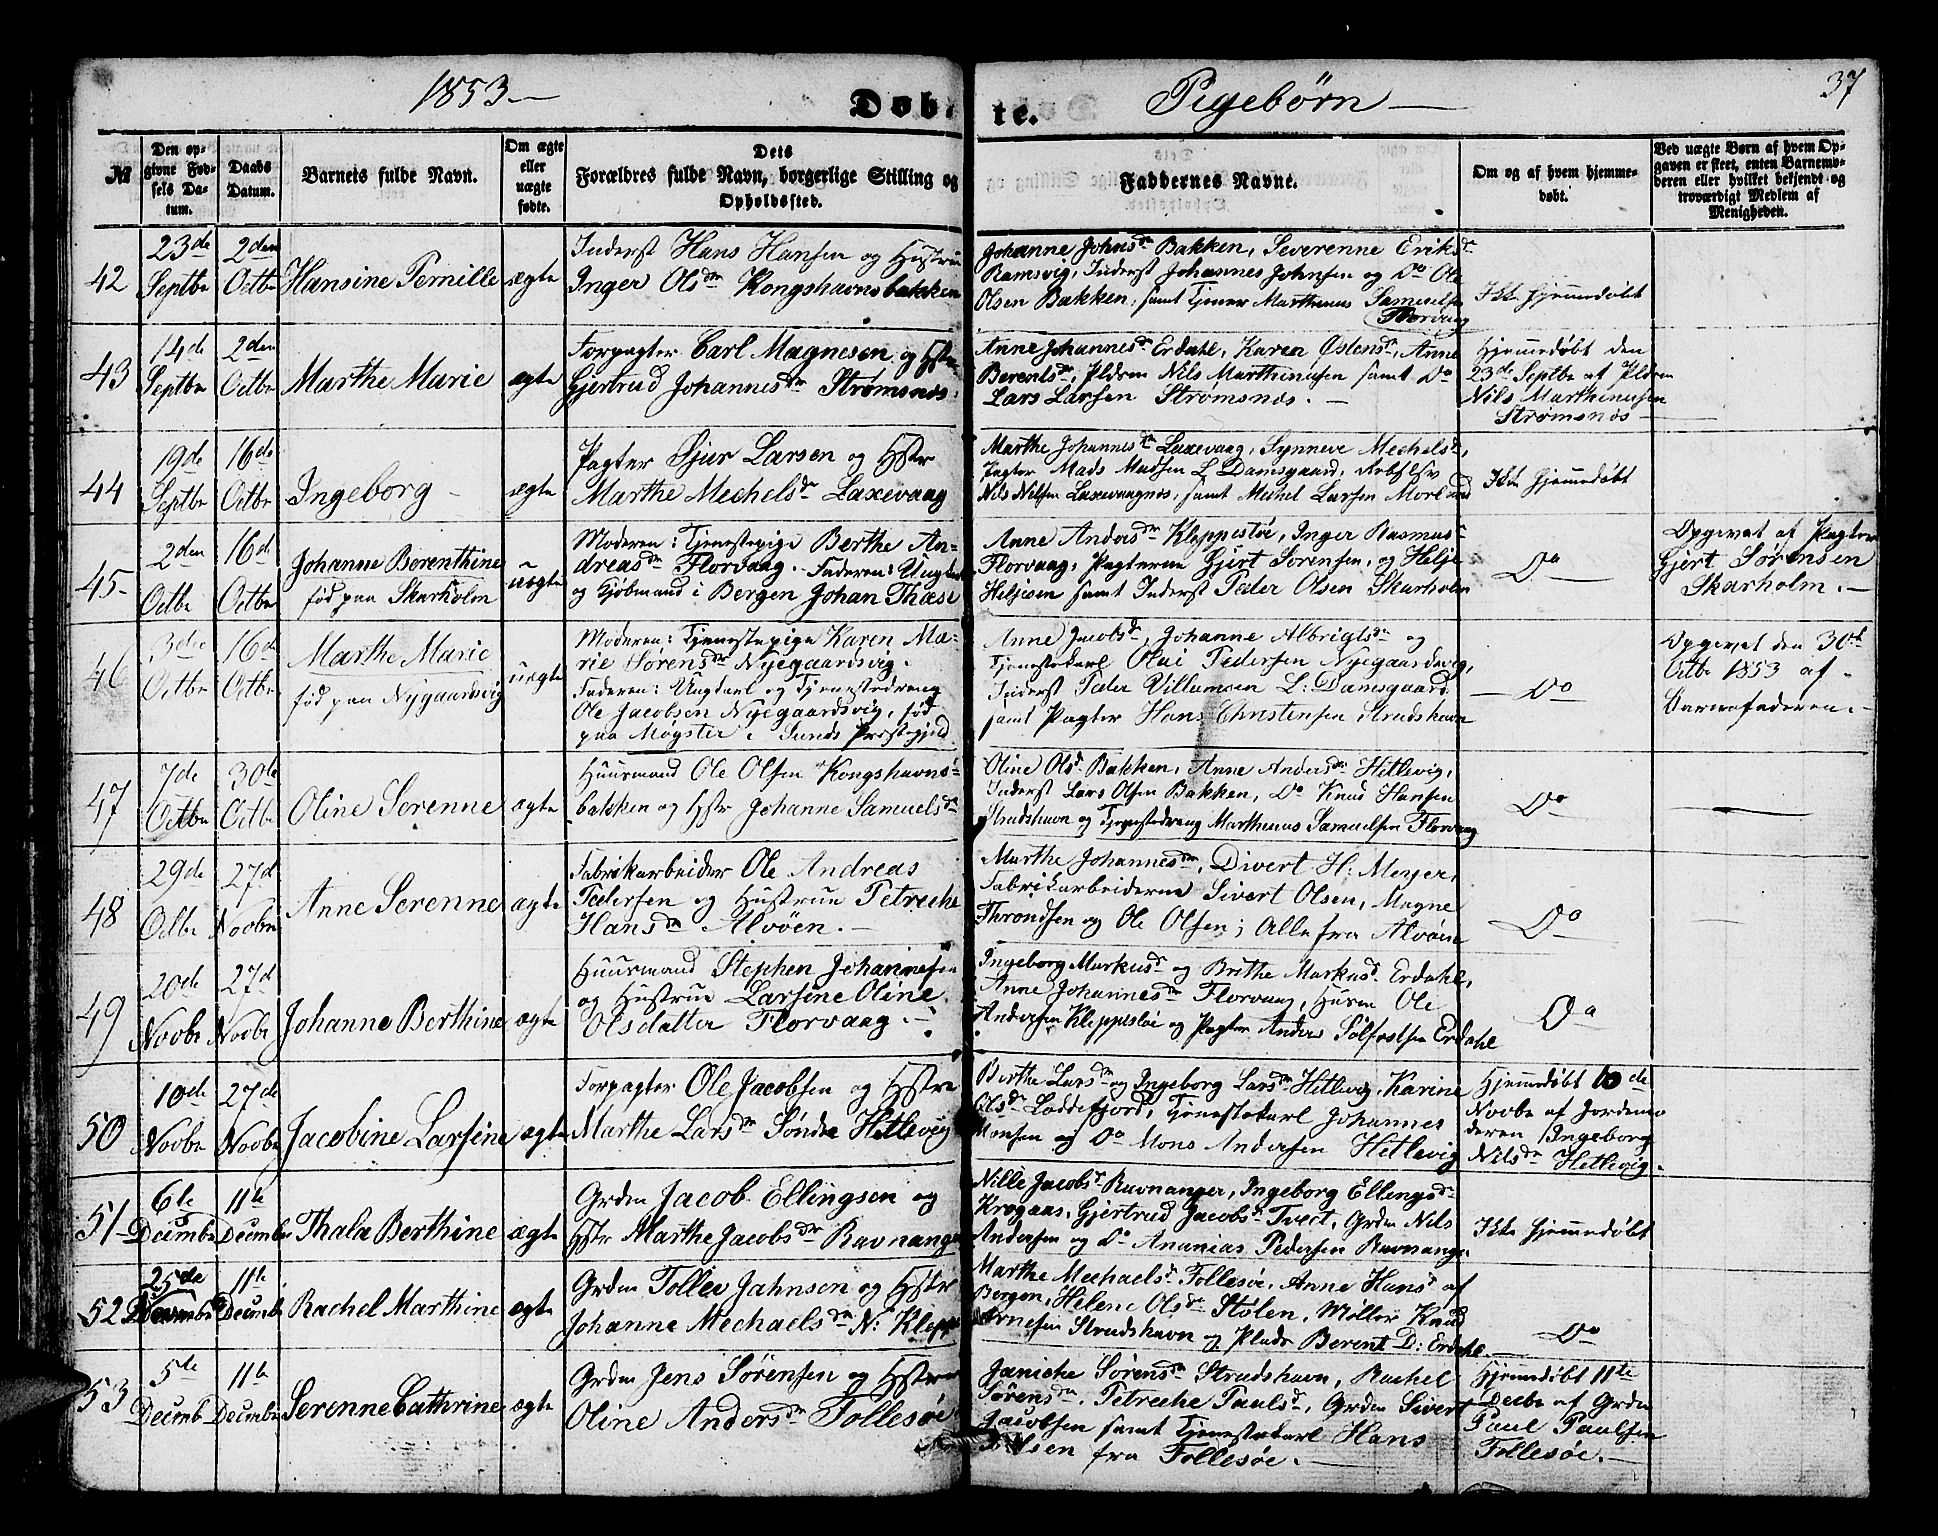 1853.—
Døbte.
Pigebørn —
37
№
Den opgivne Fødsels Datum.
Daabs Datum.
Barnets fulde Navn.
Om ægte eller uægte fødte.
Dets Forældres fulde Navn, borgerlige Stilling og Opholdssted.
Faddernes Navne.
Om og af hvem hjemmedøbt.
Ved uægte Børn af hvem Opgaven er skeet, enten Barnemoderen eller hvilket bekjendt og troværdigt Medlem af Menigheden.
42
23de Septbr
2den Octbr
Hansine Pernille
ægte
Inderst Hans Hansen og Hustrue
Inger Olsdr Kongshavnsbakken
Johanne Johnsdr Bakken, Severenne Eriksdr
Ramsvig, Inderst Johannes Johnsen og Do Ole
Olsen Bakken, samt Tjener Marthinus Samuelsen
Florvaag
Ikke hjemmedøbt
43
14de Septbr
2den Octbr
Marthe Marie
ægte
Forpagter Carl Magnesen og Hstr
Gjertrud Johannesdr Strømsnæs.
Anne Johannesdr Erdahl, Karen Østensdr, Anne
Berentsdr, Pldsm Nils Marthinussen samt Do
Lars Larsen Strømsnæs. —
Hjemmedøbt den
23de Septbr af Pldsm
Nils Marthinussen
Strømsnæs —
44
19de Septbr
16de Octbr
Ingeborg —
ægte
Pagter Sjur Larsen og Hstr
Marthe Mechelsdr Laxevaag
Marthe Johannesdr Laxevaag, Synneve Mechelsd.,
Pagter Mads Madsen L. Damsgaard, Arbsf
Nils Nilsen Laxevaagnæs, samt Mechel Larsen Morland
Ikke Hjemmedøbt
45-
2den Octbr
16de Octbr
Johanne Berenthine
fød paa Skarholm
uægte
Moderen: Tjenestepige Berthe An-
dreasdr Florvaag. Faderen: Ungkarl
og Kjøbmand i Bergen Johan Thase
Anne Andersdr Kleppestøe, Inger Rasmusd
Florvaag, Pagterne Gjert Sørensen, og Helje
Heljesen samt Inderst Peder Olsen Skarholm
Do
Opgivet af Pagter
Gjert Sørensen
Skarholm. —
46
3die Octbr
16de Octbr
Marthe Marie
fød paa Nygaardsvig
uægte
Moderen: Tjenestepige Karen Ma-
rie Sørensdr Nyegaardsvig.
Faderen: Ungkarl og Tjenestedreng
Ole Jacobsen Nyegaardsvig, fød
paa Møgster i Sunds Præstegjeld
Anne Jacobsdr, Johanne Albrigtsdr og
Tjenestekarl Olai Pedersen Nyegaardsvig,
Inderst Peder Villumsen L. Damsgaard
samt Pagter Hans Christensen Strudshavn
Do
Opgivet den 30te
Octbr 1853 af
Barnefaderen. —
47
7de Octbr
30te Octbr
Oline Serenne
ægte
Huusmand Ole Olsen Kongshavns-
bakken og Hstr Johanne Samuelsdr
Oline Olsd. Bakken, Anne Andersdr Hetlevig,
Inderst Lars Olsen Bakken, Do Knud Hansen
Strudshavn og Tjenestedreng Marthinus Samuelsen Florvaag
Do
48
29de Octbr
27de Novbr
Anne Serenne
ægte
Fabrikarbeider Ole Andreas
Pedersen og Hustrue Petreche
Hansdr Alvøen. —
Marthe Johannesdr, Divert H: Meyer,
Fabrikarbeiderne Sivert Olsen, Magne
Throndsen og Ole Olsen; Alle fra Alvøen
Do
49
20de Novbr
27de Novbr
Johanne Berthine
ægte
Huusmand Stephen Johannesen
og Hustrue Larsine Oline
Olsdatter Florvaag. —
Ingeborg Markusdr og Brithe Markusd. Erdahl,
Anne Johannesdr Florvaag, Huusm Ole
Andersen Kleppestøe og Pagter Anders Solfæstsen Erdahl
Do
50
10de Novbr
27de Novbr
Jacobine Larsine
ægte
Forpagter Ole Jacobsen og Hstr
Marthe Larsdr Søndre Hetlevig
Berthe Larsdr og Ingeborg Larsdr Hetlevig, Karine
Olsdr Loddefjord, Tjenestekarl Johannes
Monsen og Do Mons Andersen Hetlevig
Hjemmedøbt 10de
Novbr af Jordemo-
deren Ingeborg
Nilsdr Hetlevig.
51-
6te Decembr
11te Decembr
Thala Berthine
ægte
Grdm Jacob Ellingsen og
Hstr Marthe Jacobsdr Ravnanger
Nille Jacobsdr Ravnanger, Ingeborg Ellingsdr
Krogaas, Gjertrud Jacobsd. Tveit, Grdm Nils
Andersen og Do Ananias Pedersen Ravnanger
Ikke Hjemmedøbt
52
25de Novembr
11te Decembr
Rachel Marthine
ægte
Grdm Tollev Jahnsen og Hstr
Johanne Mechaelsdr N: Klepp
Marthe Mechaelsd. Follesøe, Anne Hansd af
Bergen, Helene Olsdr Stølen, Møller Knud
Arnesen Strudshavn og Plads Berent D: Erdahl. —
Do
53
5te Decembr
11te Decembr
Serenne Cathrine
ægte
Grdm Jens Sørensen og Hstr
Oline Andersdr Follesøe
Janiche Sørensdr Strudshavn, Rachel
Sørensdr, Petreche Paulsd., Grdm Sivert
Jacobsen samt Tjenestekarl Hans
Olsen fra Follesøe. —
Hjemmedøbt 11te
Decbr af Grdm
Paul Paulsen
Follesøe. —